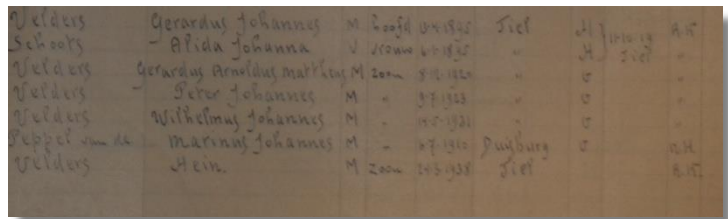 Velders Gerardus Johannes M hoofd Tiel H
Schoots Alida Johanna V vrouw " H Tiel "
Velders Gerardus Arnoldus Mattheus M zoon " O "
Velders Peter Johannes M " 9-7-1923 " O "
Velders Wilhelmus Johannes M " " O "
Peppel van de Marinus Johannes M " Duisburg O N.H.
Velders Hein. M zoon Tiel R.K.